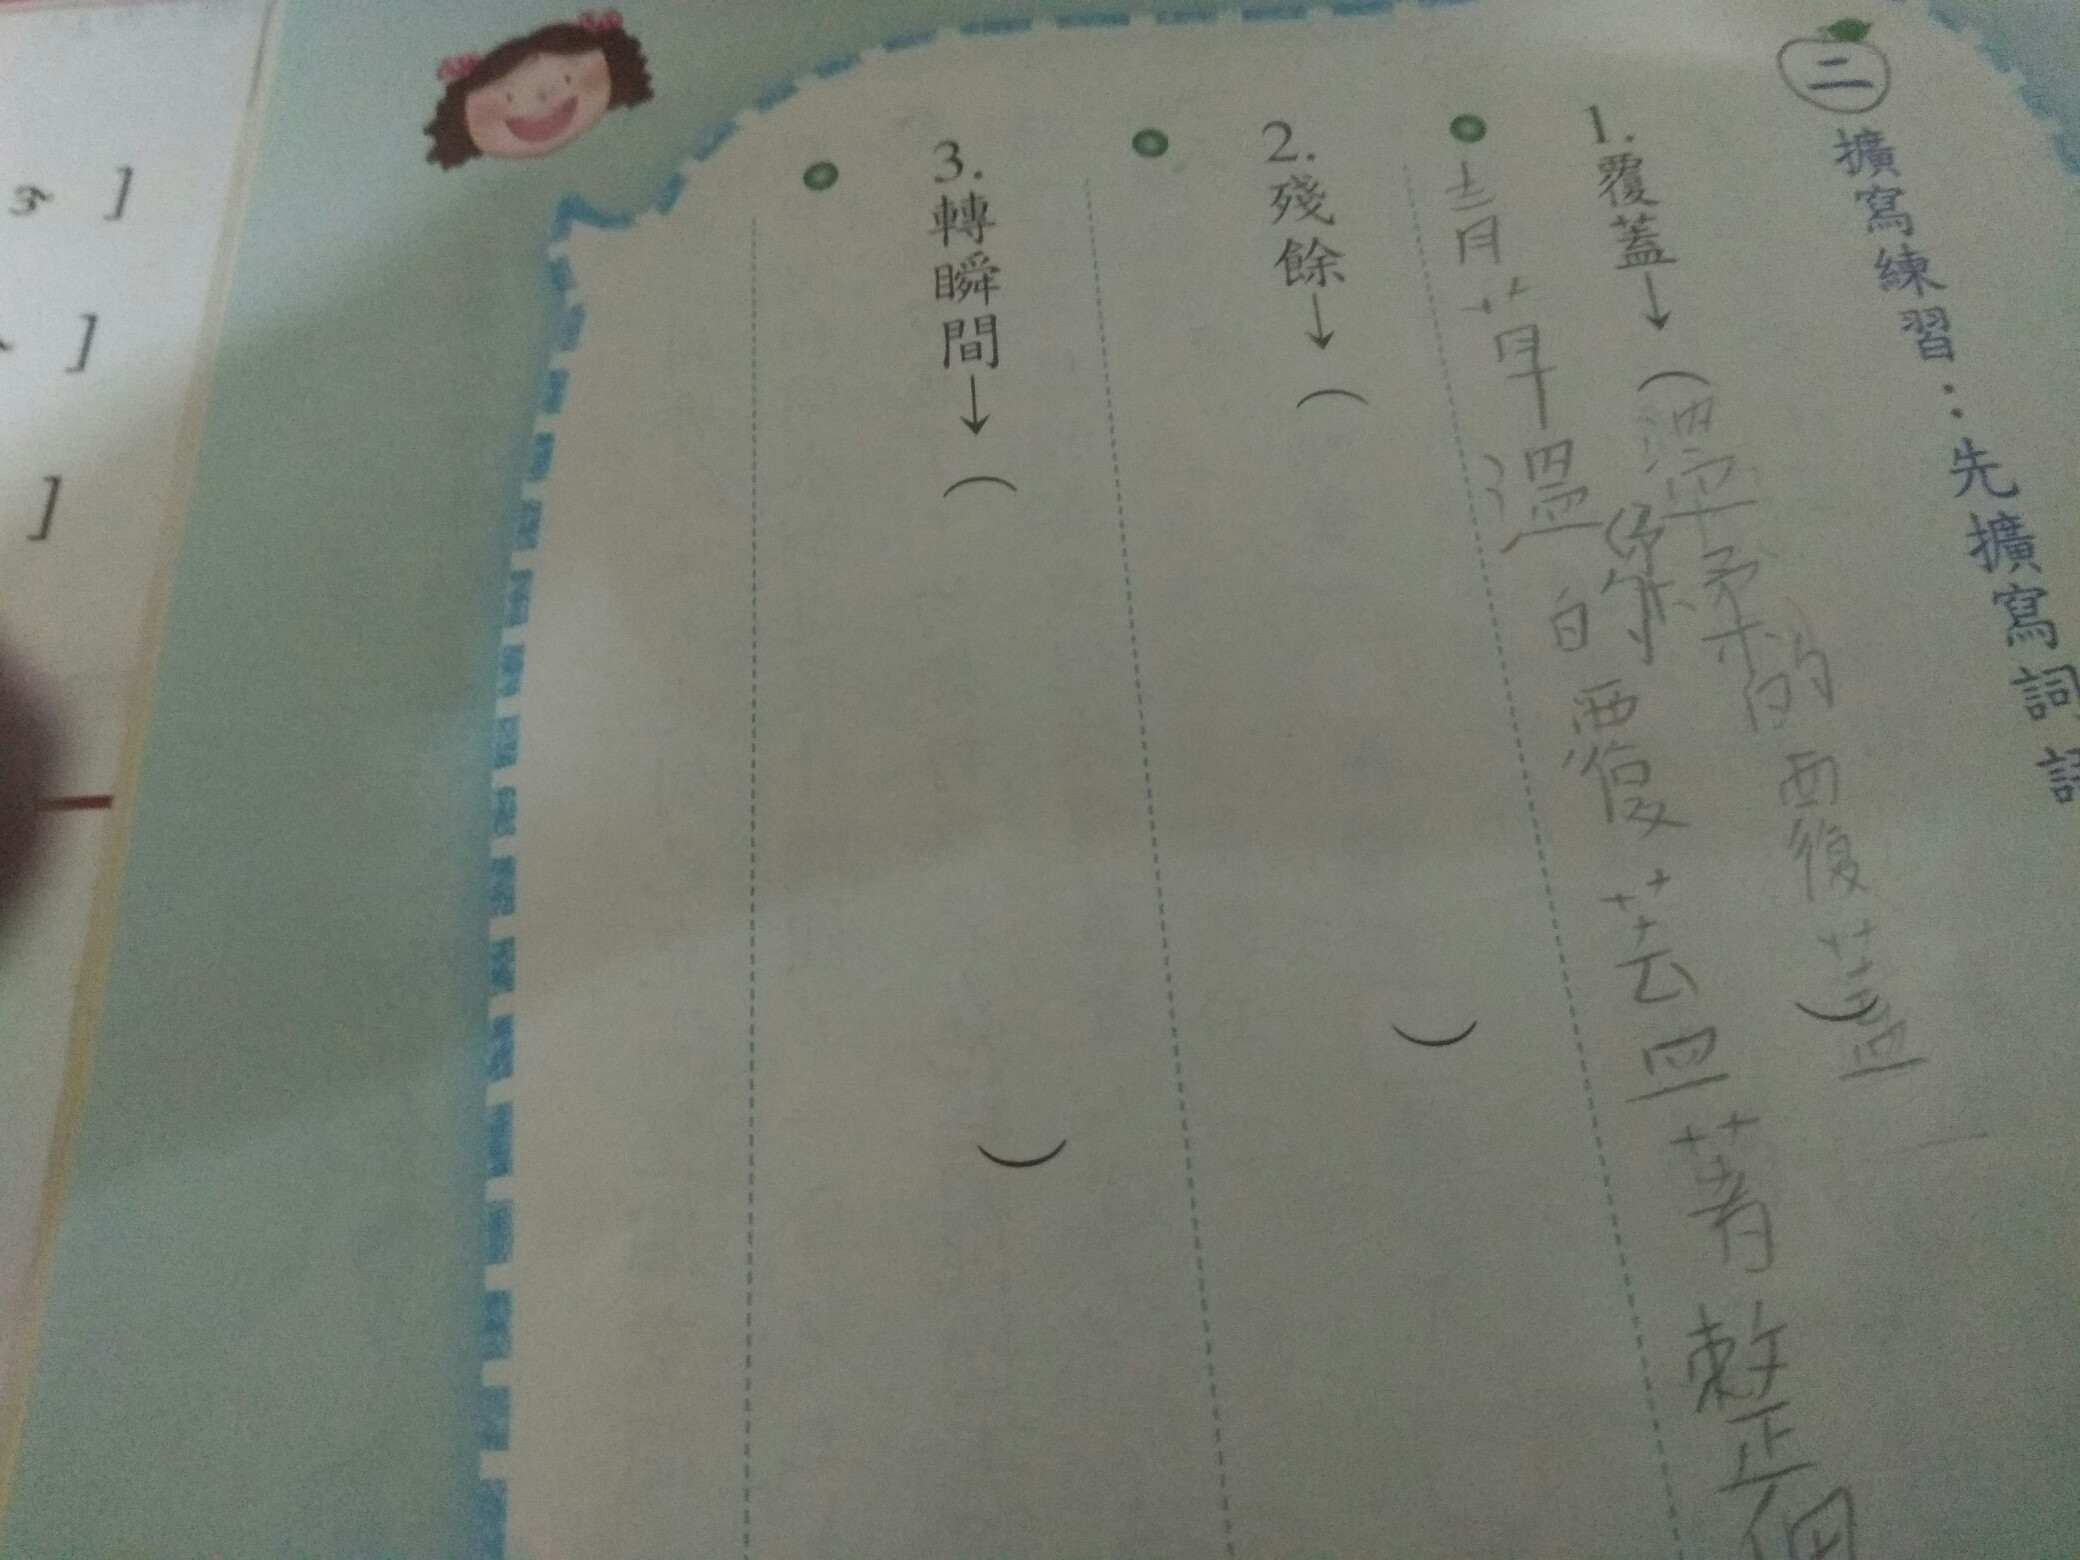 二 擴寫練習：先擴寫詞語
1. 覆蓋→（溫柔的覆蓋）
青草溫柔的覆蓋著整個
2. 殘餘→（ ）
3. 轉瞬間→（ ）
]
]
]